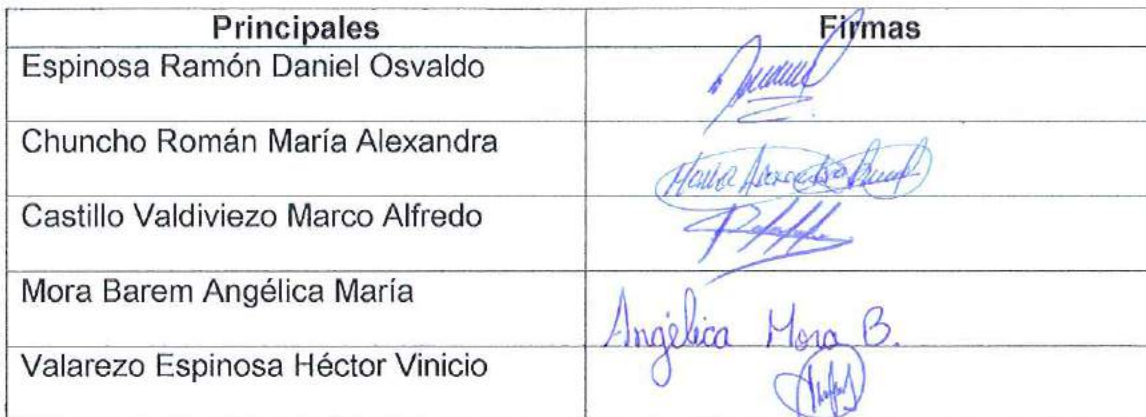 Principales Firmas
Espinosa Ramón Daniel Osvaldo
Chuncho Román María Alexandra
Castillo Valdiviezo Marco Alfredo
Mora Barem Angélica María
Angélica Mora B.
Valarezo Espinosa Héctor Vinicio